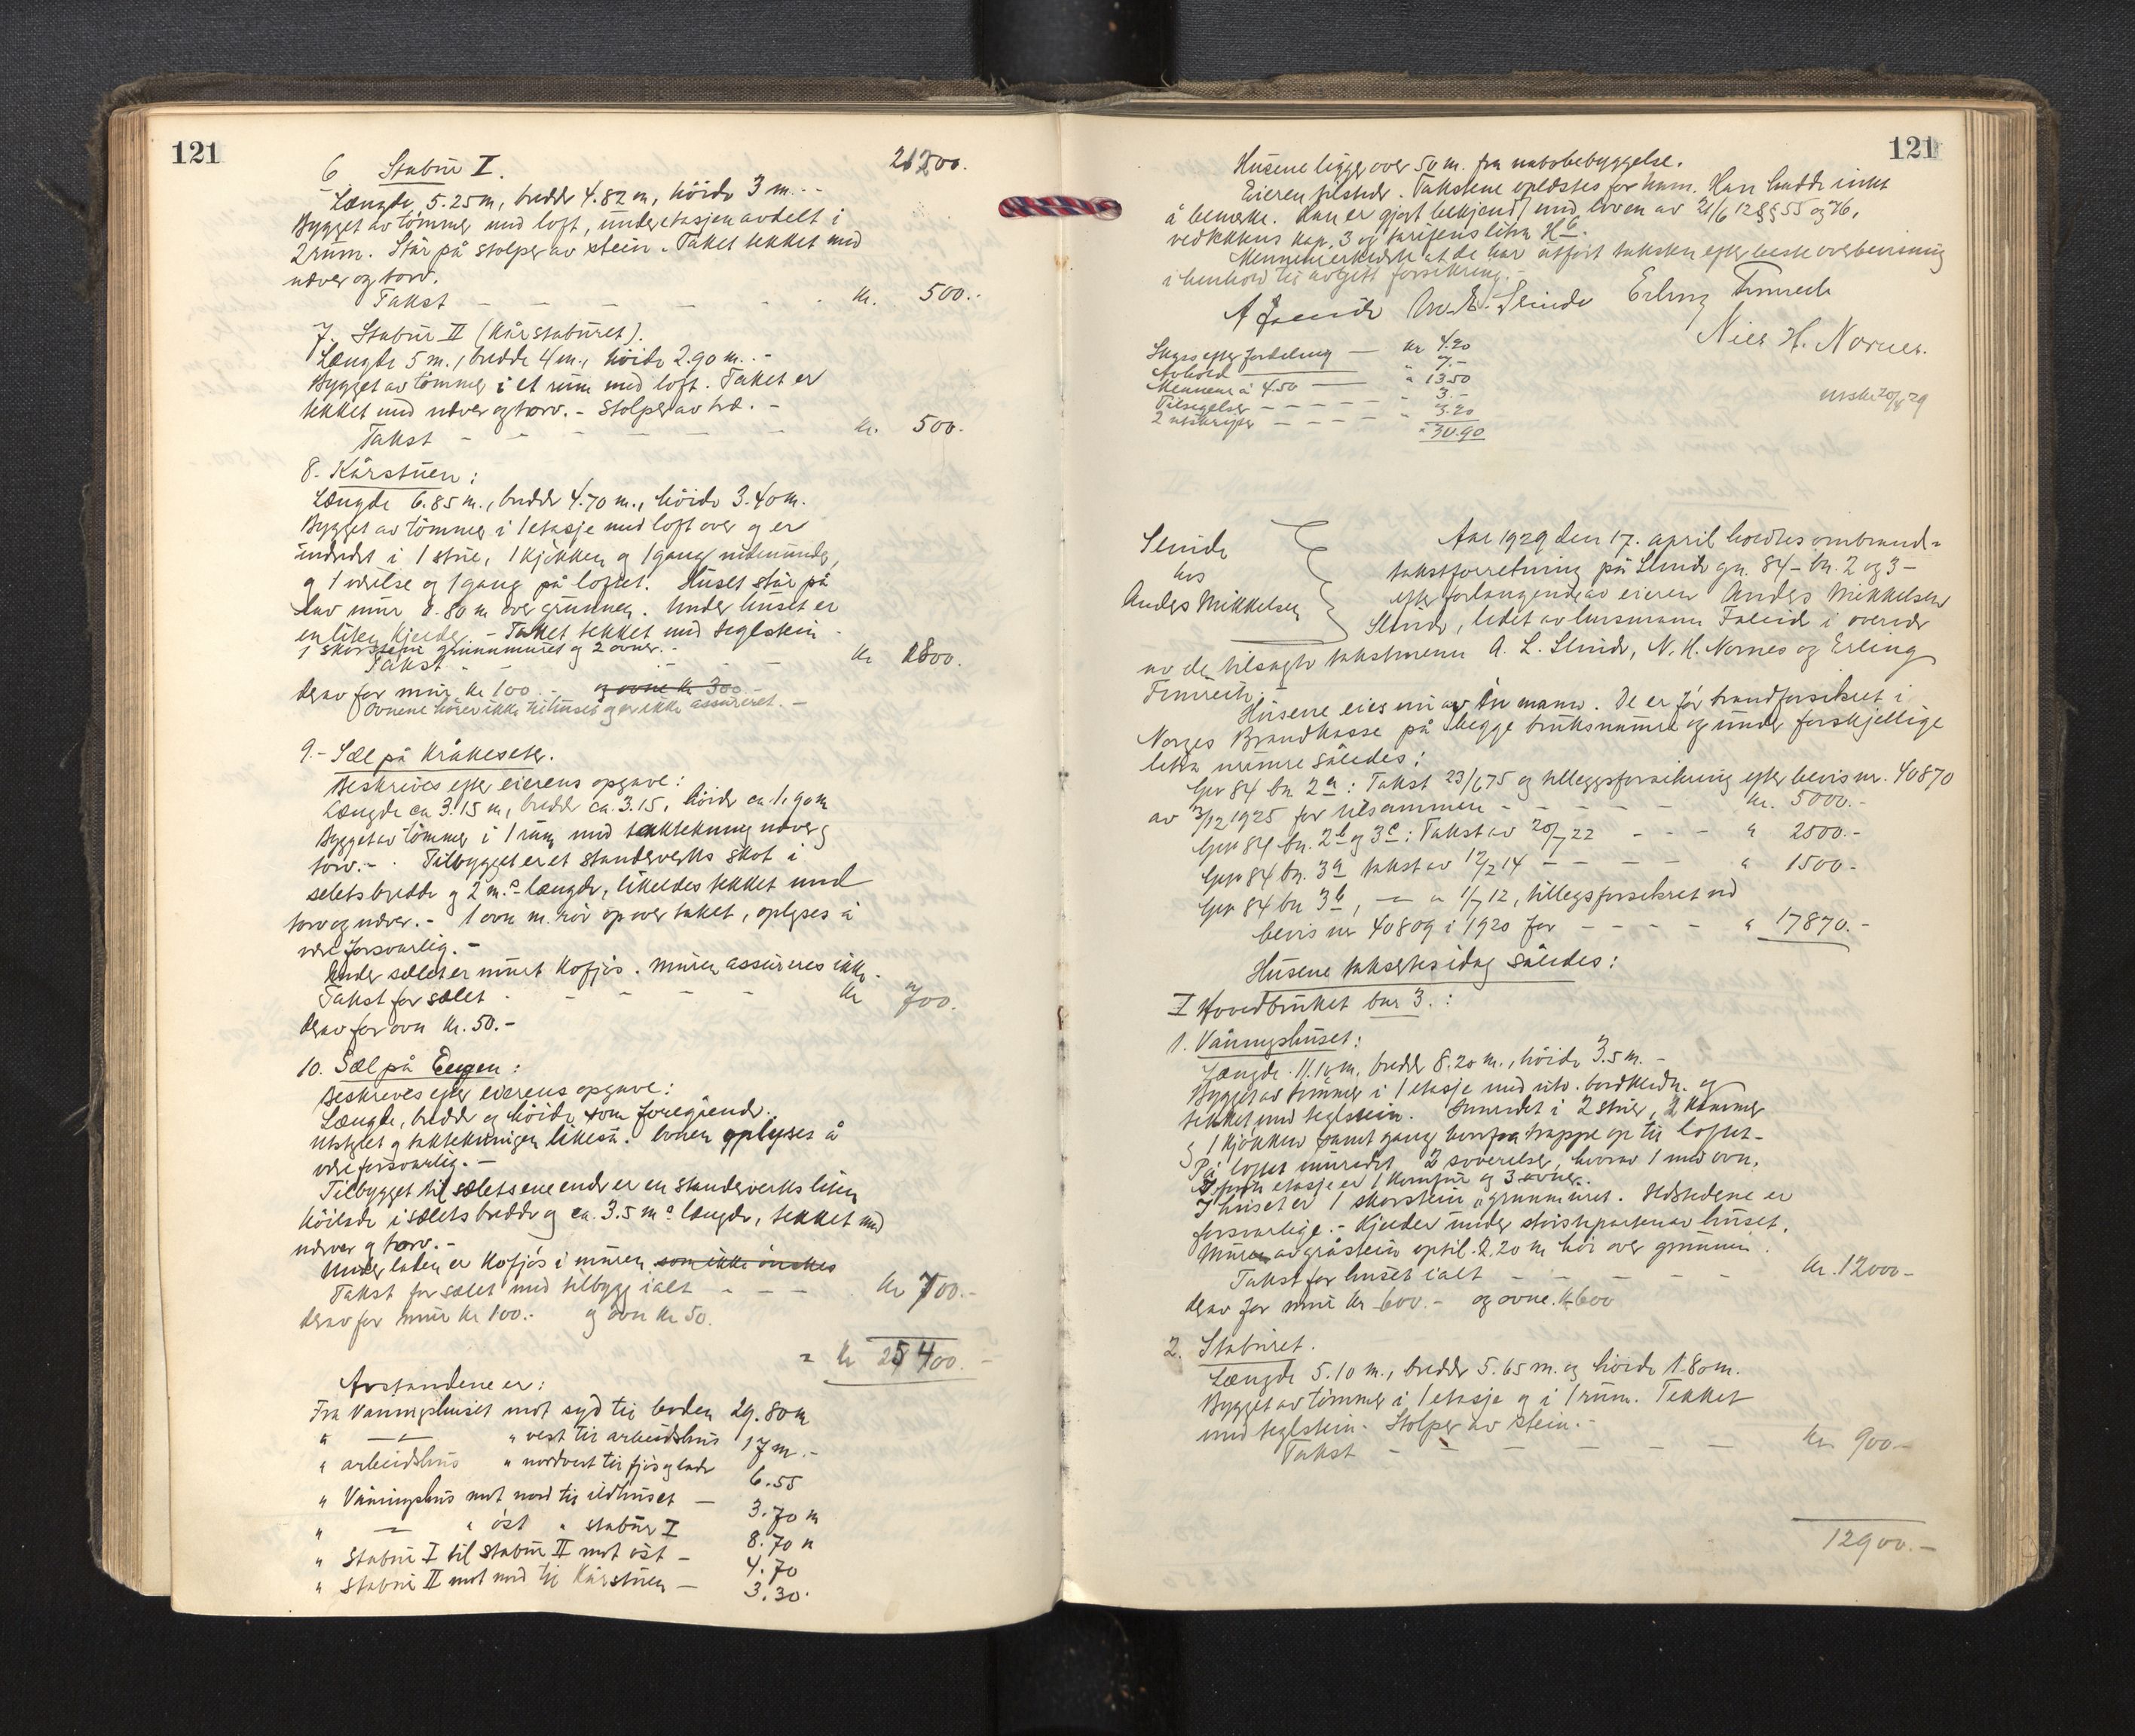 121
6 Stabur I. 21200.
Længde 5.25 m, bredde 4.82 m, höide 3 m. -
Bygget av tömmer med loft, underetasjen avdelt i
2 rum. Står på stolper av stein. Taket tekket med
næver og torv.
Takst - - - - - - kr. 500.-
7. Stabur II (Kårstaburet).
Længde 5 m., bredde 4 m., höide 2.90 m. -
Bygget av tömmer i et rum med loft. Taket er
tekket med næver og torv. - Stolper av træ. -
Takst - - - - - - kr. 500.
8. Kårstuen:
Længde 6.85 m., bredde 4.70 m., höide 3.40 m.
Bygget av tömmer i 1 etasje med loft over og er
inderedet i 1 stue, 1 kjökken og 1 gang nedenunder,
og 1 værelse og 1 gang på loftet. Huset står på
lav mur 0.80 m over grunnen. Under huset er
en liten kjelder. - Taket tekket med teglstein
1 skorstein grunnmuret og 2 ovner. -
Takst - - - - kr 1800.
derav for mur kr 100. - og ovne kr 300 -
Ovnene hörer ikke til huset og er ikke assureret. -
9. - Sæl på Kråkeseter.
Beskrives efter eierens opgave:
Længde ca 3.15 m, bredde ca. 3.15, höide ca. 1.90 m
Bygget av tömmer i 1 rum med taktekning næver og
torv. - Tilbygget er et standerverks skot i
sælets bredde og 2 m.s længde, likeledes tekket med
torv og næver. - 1 ovn m. rör op over taket, oplyses å
være forsvarlig. -
Under sælet er muret kofjös. Muren assureres ikke.
Takst for sælet - - - - - kr 700.
derav for ovn kr. 50. -
10. Sæl på Eegen:
Beskrives efter eierens opgave:
Længde, bredde og höide som foregående.
Utstyret og taktekningen likeså. Ovnen oplyses å
være forsvarlig. -
Tilbygget til sælets ene ende er en standerverks liten
höilade i sælets bredde og ca. 3.5 ms længde, tekket med
næver og torv. -
Under laden er kofjös i muren som ikke önskes
Takst for sælet med tilbygg ialt - - - kr 700.-
derav for mur kr 100.- og ovn kr 50.
= kr 25400. -
Avstandene er:
Fra Våningshuset mot syd til boden 29.80 m
" — " vest til arbeidshus 17 m. -
" arbeidshus " nordvest til fjös og lade 6.55
" Våningshus mot nord til ildhuset — 3.70 m
" — " öst " stabur I 8.70 m
" Stabur I til stabur II mot öst - 4.70
" stabur II mot nord til Kårstuen — 3.30.
121
Husene ligger over 50 m. fra nabobebyggelse.
Eieren tilstede. Takstene oplæstes for ham. Han hadde intet
å bemerke. Han er gjort bekjendt med loven av 21/6 12 §§ 55 og 76,
vedtektens kap. 3 og tarifens litra H6.
Mennene erklærte at de har utfört taksten efter beste overbevisning
i henhold til avgitt forsikring. -
A Faleide A.L. Slinde Erling Fimreite
Niels H. Nornes.
Skyss efter fordeling — kr 4.20
Avhold — " 7.-
Mennene á 4.50 — " 13.50
Tilsigelser - - - - - " 3.-
2 utskrifter - - - - " 3.20
" 30.90
utskr 20/8 29
Slinde
hos
Anders Mikkelsen
Aar 1929 den 17. april holdtes ombrand=
takstforretning på Slinde gn. 84 - bn. 2 og 3 -
efter forlangende av eieren Anders Mikkelsen
Slinde, ledet av lensmann Faleide i overvær
av de tilsagte takstmenn A. L. Slinde, N. H. Nornes og Erling
Fimreite. -
Husene eies nu av én mann. De er för brandforsikret i
Norges Brandkasse på begge bruksnumre og under forskjellige
litra numre således:
Gnr 84 bn 2a: Takst 23/6 75 og tilleggsforsikring efter bevis nr. 40870
av 3/12 1925 for tilsammen - - - - - kr. 5000. -
Gnr 84 bn. 2b og 3c: Takst av 20/7 22 - - - " 2500. -
Gnr 84 bn. 3a takst av 12/2 14 - - - - - " 1500 -
Gnr 84 bn 3b, — " 1/7 12, tillegsforsikret ved
bevis nr 40809 i 1920 for - - - - " 17870. -
Husene takseres idag således:
I Hovedbruket bnr 3.:
1. Våningshuset:
Længde 11.10 m, bredde 8.20 m., höide 3.5 m. -
Bygget av tömmer i 1 etasje med utv. bordklædn. og
tekket med teglstein. Innredet i 2 stuer, 2 kammer
og 1 kjökken samt gang hvorfra trappe op til loftet -
På loftet innredet 2 soverelser, hvorav 1 med ovn.
I förste etasje er 1 komfur og 3 ovner.
I huset er 1 skorstein, grunnmuret. Ildstedene er
forsvarlige. - Kjelder under störsteparten av huset.
Muren av gråstein optil 2.20 m höi over grunnen.
Takst for huset ialt - - - - - kr. 12000 -
derav for mur kr 600. - og ovne. k 600
2. Staburet.
Længde 5.10 m., bredde 5.65 m. og höide 1.80 m.
Bygget av tömmer i 1 etasje og i 1 rum. Tekket
med teglstein. Stolper av stein. -
Takst - - - - - - kr. 900. -
12900. -